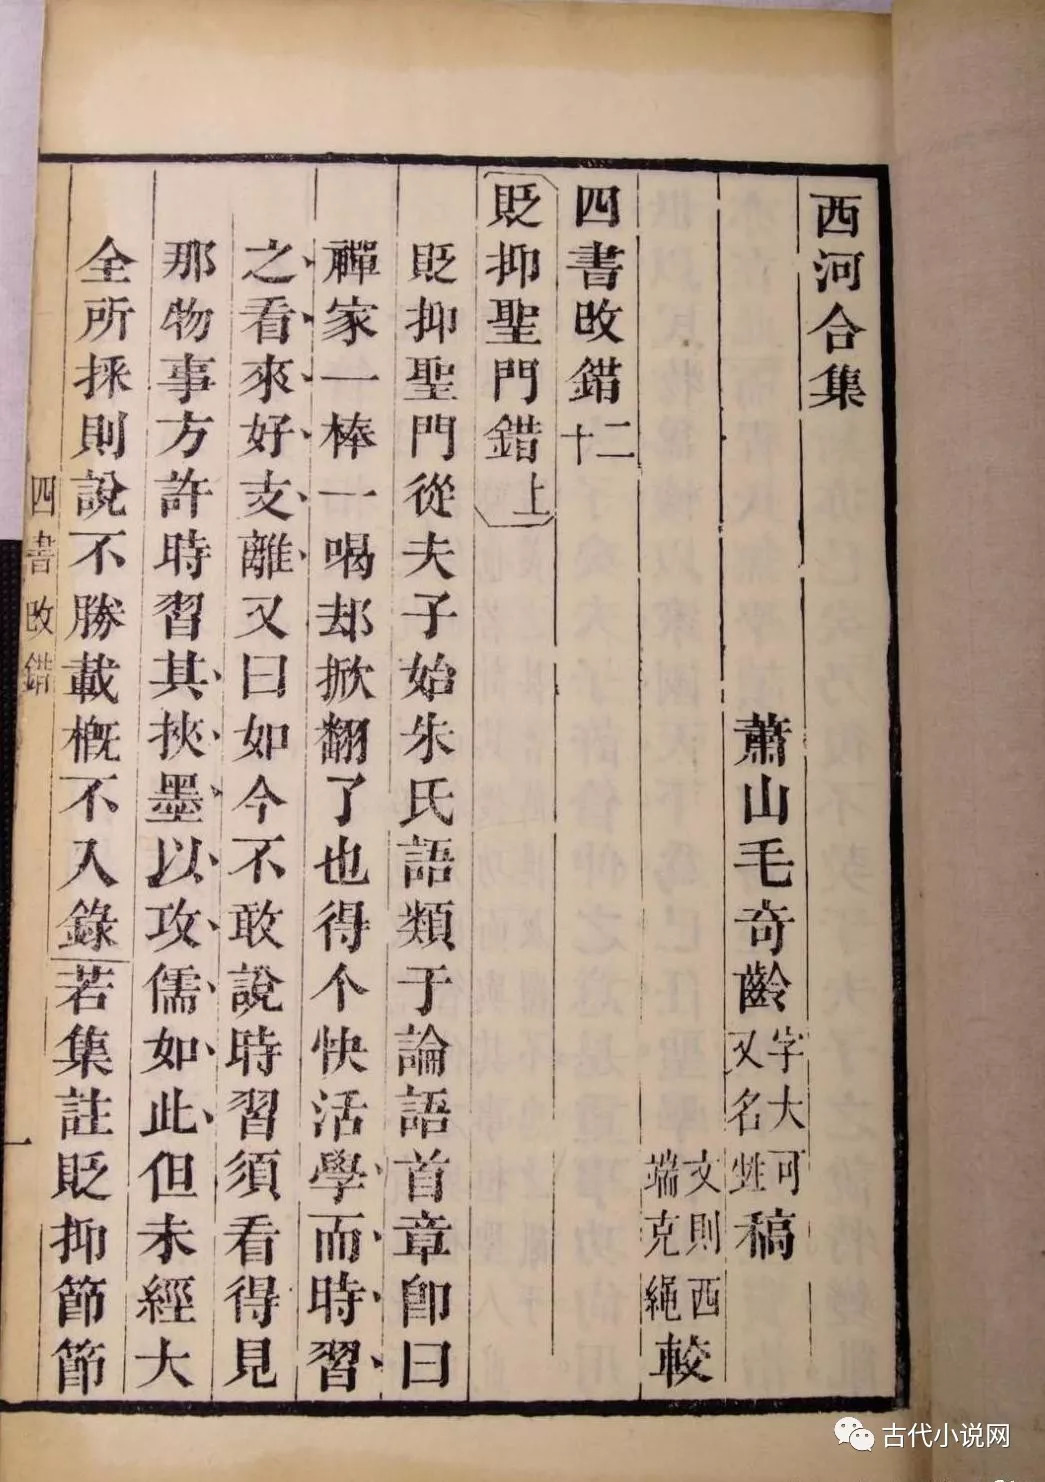 西河合集
蕭山毛奇齡字大可又名甡稿
文則西端克繩較
四書改錯二十
貶抑聖門錯上
貶抑聖門從夫子始朱氏語類于論語首章卽曰
禪家一棒一喝却掀翻了也得个快活學而時習
之看來好支離又曰如今不敢說時習須看得見
那物事方許時習其挾墨以攻儒如此但未經大
全所採則說不勝載槪不入錄若集註貶抑節節
四書改錯
一
古代小说网